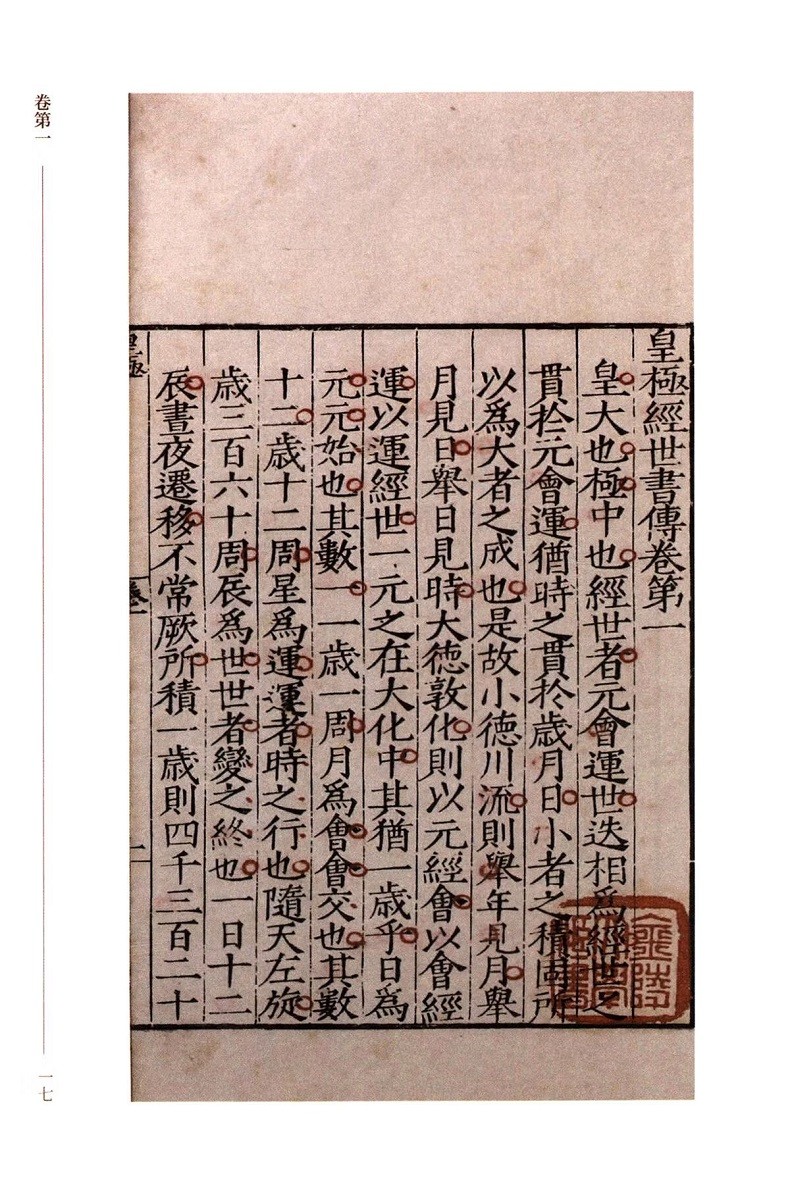 皇極經世書傳卷第一
皇大也極中也經世者元會運世迭相爲經世之
貫於元會運猶時之貫於歲月日小者之積固所
以爲大者之成也是故小德川流則舉年見月舉
月見日舉日見時大德敦化則以元經會以會經
運以運經世一元之在大化中其猶一歲乎日爲
元元始也其數一一歲一周月爲會會交也其數
十二歲十二周星爲運運者時之行也隨天左旋
歲三百六十周辰爲世世者變之終也一日十二
辰晝夜遷移不常厥所積一歲則四千三百二十
皇極
卷一
一
卷第一
一七